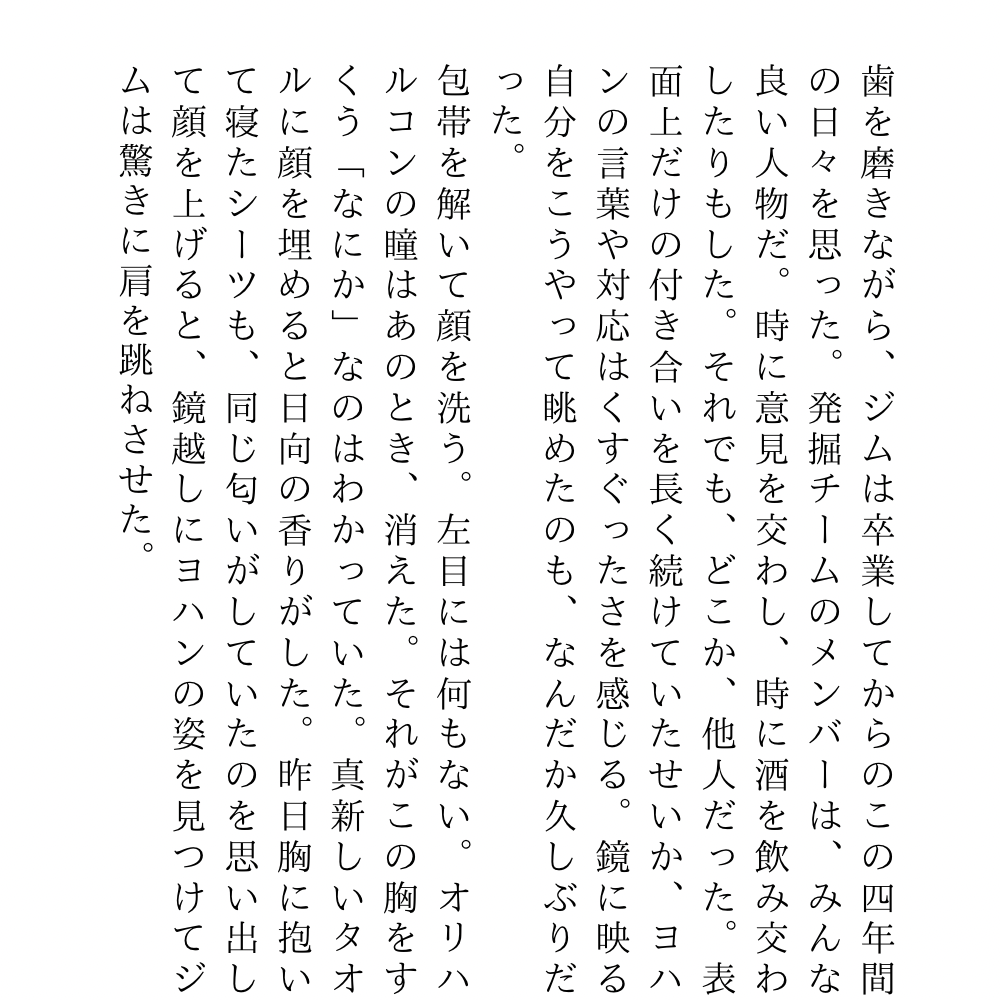 歯を磨きながら、ジムは卒業してからのこの四年間
の日々を思った。発掘チームのメンバーは、みんな
良い人物だ。時に意見を交わし、時に酒を飲み交わ
したりもした。それでも、どこか、他人だった。表
面上だけの付き合いを長く続けていたせいか、ヨハ
ンの言葉や対応はくすぐったさを感じる。鏡に映る
自分をこうやって眺めたのも、なんだか久しぶりだ
った。
包帯を解いて顔を洗う。左目には何もない。オリハ
ルコンの瞳はあのとき、消えた。それがこの胸をす
くう「なにか」なのはわかっていた。真新しいタオ
ルに顔を埋めると日向の香りがした。昨日胸に抱い
て寝たシーツも、同じ匂いがしていたのを思い出し
て顔を上げると、鏡越しにヨハンの姿を見つけてジ
ムは驚きに肩を跳ねさせた。